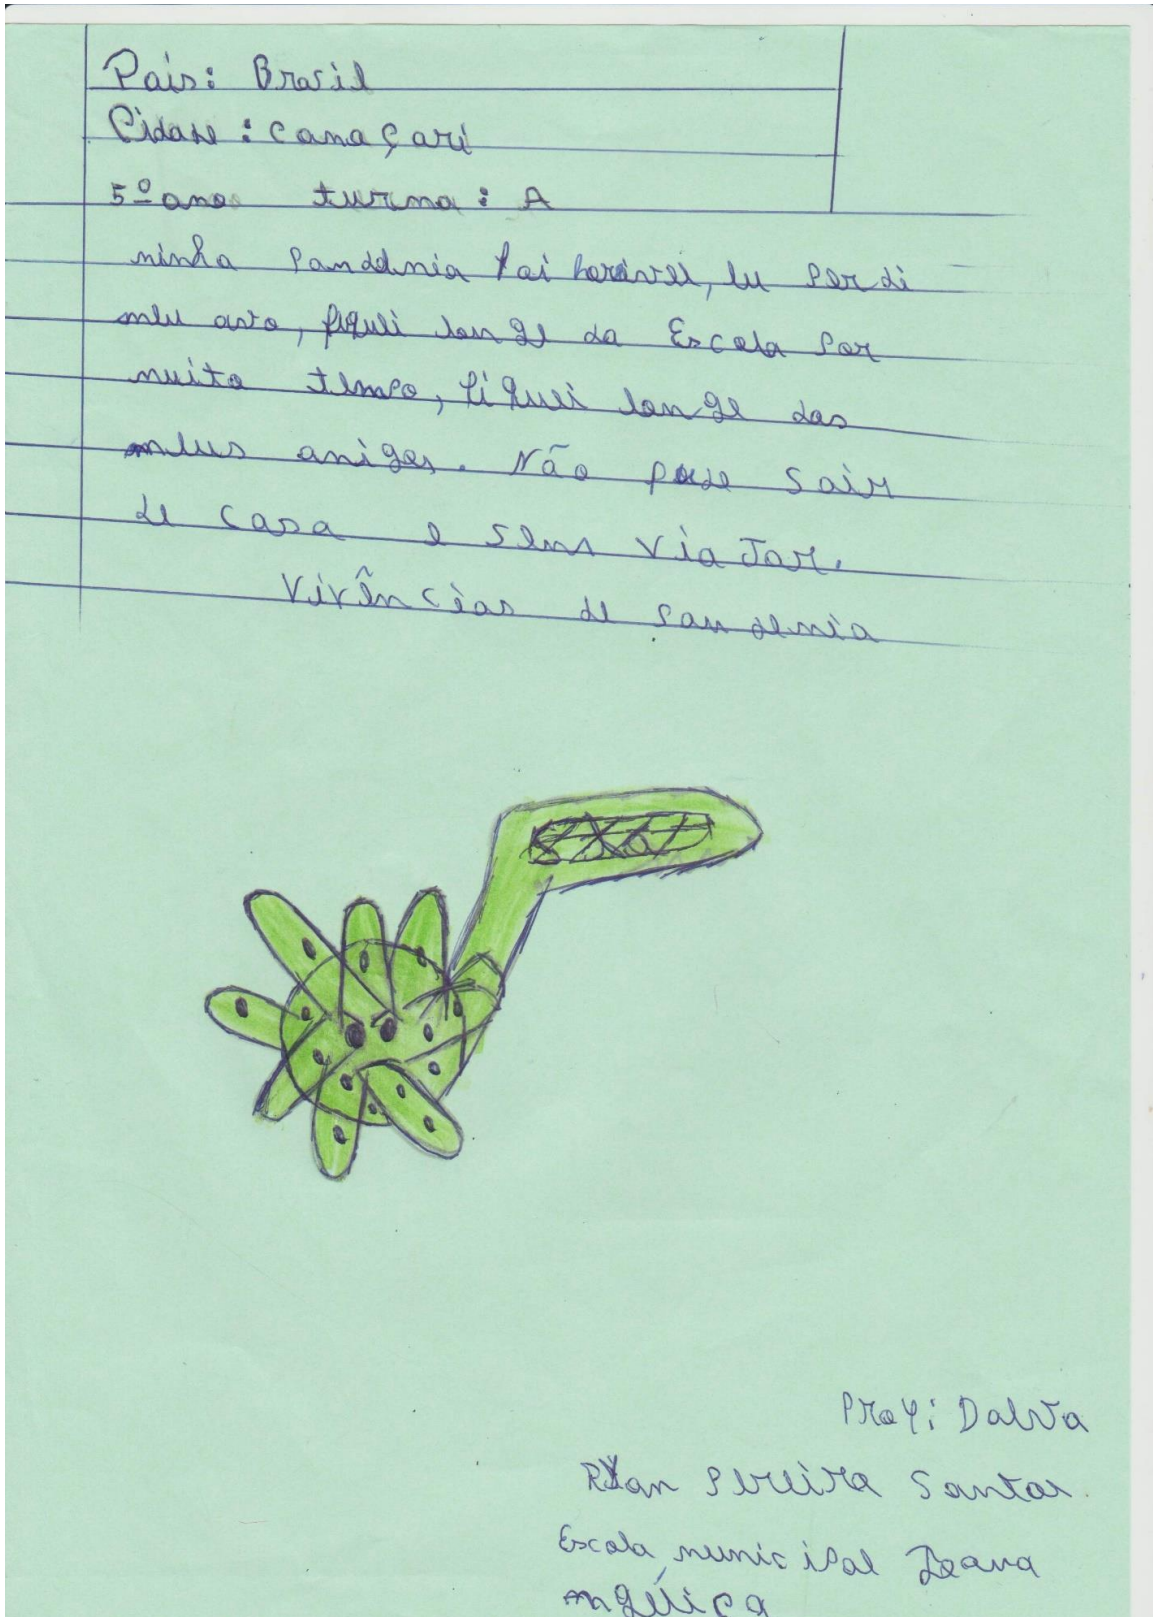 País: Brasil
Cidade: Camaçari
5º ano turma: A
minha pandemia foi horivel, eu perdi
meu avo, fiquei longe da Escola por
muito tempo, fiquei longe dos
meus amigos. Não pude sair
de casa e sem viaJar.
Vivências de pandemia
Prof: Dalva
Ryan Pereira Santos
Escola municipal Joana
Angélica